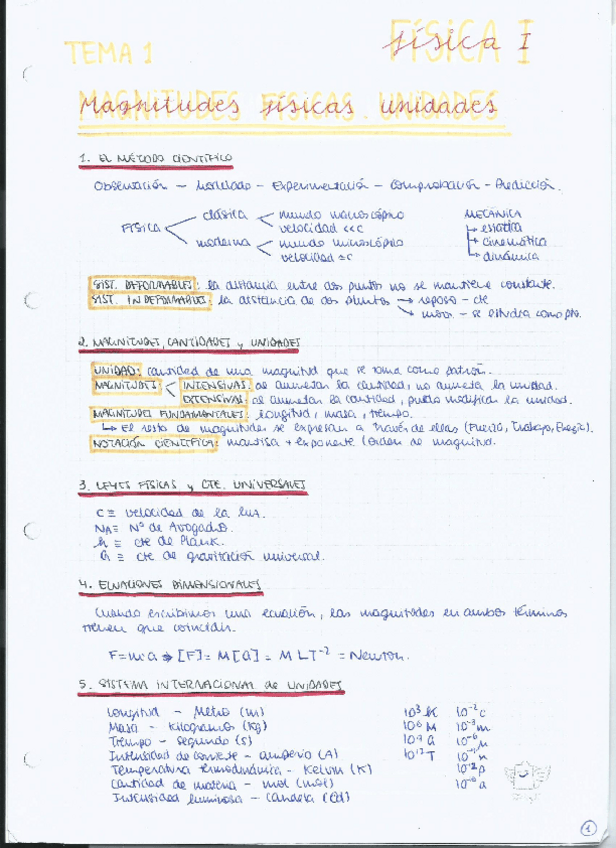 TEMA 1
FÍSICA I
Magnitudes físicas. Unidades
1. EL MÉTODO CIENTÍFICO
Observación - Modelado - Experimentación - Comprobación - Predicción.
FÍSICA
clásica
mundo macroscópico
velocidad <<c
moderna
mundo microscópico
velocidad ≃c
MECÁNICA
estática
cinemática
dinámica
SIST. DEFORMABLES: la distancia entre dos puntos no se mantiene constante.
SIST. INDEFORMABLES: la distancia de dos puntos → reposo - cte
→ mov. - se
2. MAGNITUDES, CANTIDADES y UNIDADES
UNIDAD: cantidad de una magnitud que se toma como patrón.
MAGNITUDES
INTENSIVAS: al aumentar la cantidad, no aumenta la unidad.
EXTENSIVAS: al aumentar la cantidad, puedo modificar la unidad.
MAGNITUDES FUNDAMENTALES: longitud, masa, tiempo.
↳ El resto de magnitudes se expresan a través de ellas (Fuerza, Trabajo, Energía).
NOTACIÓN CIENTÍFICA: mantisa + exponente (Orden de magnitud.
3. LEYES FÍSICAS y CTE. UNIVERSALES
C ≡ velocidad de la luz.
NA ≡ Nº de Avogadro.
h ≡ cte de Plank.
G ≡ cte de gravitación universal.
4. ECUACIONES DIMENSIONALES
Cuando escribimos una ecuación, las magnitudes en ambos términos
tienen que coincidir.
F=m·a → [F]= M[a] = M L T⁻² = Newton.
5. SISTEMA INTERNACIONAL de UNIDADES
Longitud - Metro (m)
Masa - Kilogramos (Kg)
Tiempo - segundo (s)
Intensidad de corriente - amperio (A)
Temperatura termodinámica - Kelvin (K)
Cantidad de materia - mol (mol)
Intensidad luminosa - candela (Cd)
10³ K
10⁶ M
10⁹ G
10¹² T
10⁻² c
10⁻³ m
10⁻⁶ μ
10⁻⁹ n
10⁻¹² p
1